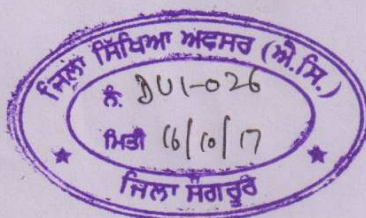 ਜਿਲਾ ਸਿੱਖਿਆ ਅਫਸਰ (ਐ.ਸਿ.)
ਨੰ: DU1-026
ਮਿਤੀ 16/10/17
ਜਿਲਾ ਸੰਗਰੂਰ